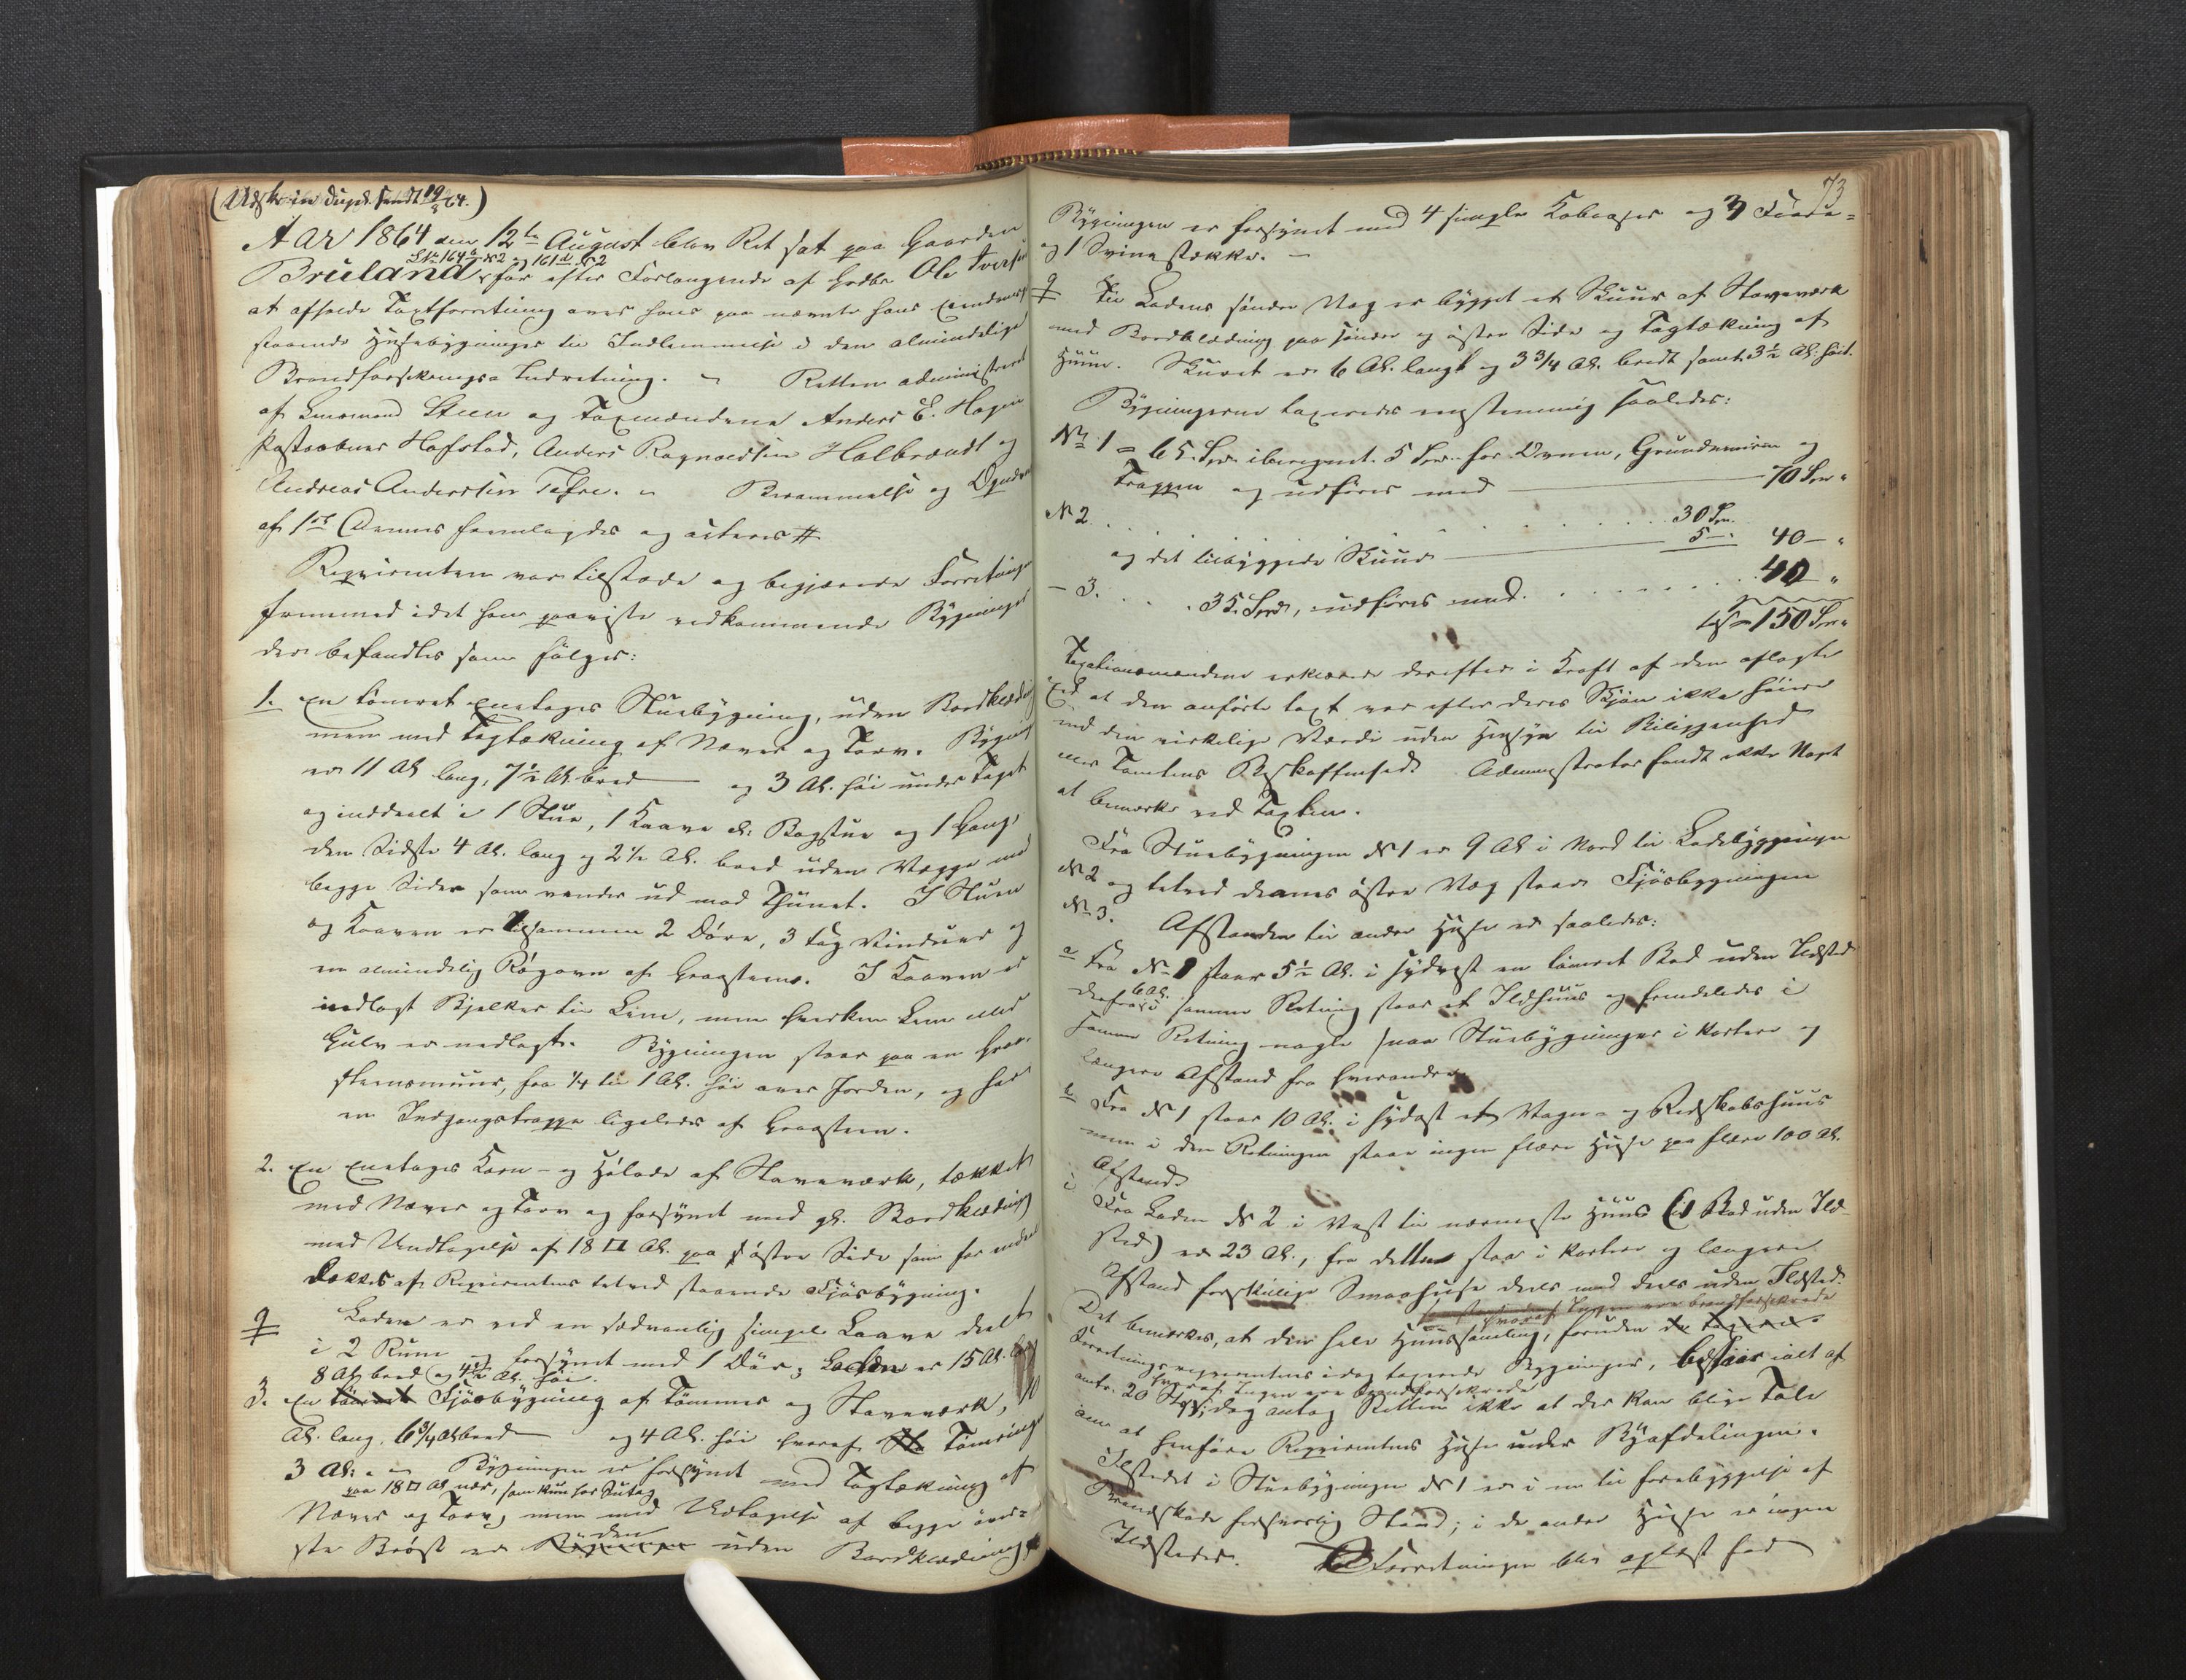 (Udskr. in dupl. sendt 19/8 64.)
Aar 1864 den 12te August blev Ret sat paa Gaarden
LNr 164a No 2 og 161d No 2
Bruland for efter Forlangende af Gdbr. Ole Iversen
at afholde Taxtforretning over hans paa nævnte hans Eiendom
staaende Husebygninger til Indlemmelse i den almindelige
Brandforsikrings-Indretning. - Retten administreret
af Lensmand Steen og Taxmændene Anders E. Hagen
Postaabner Hafstad, Anders Ragnvaldsen Halbrændt og
Andreas Anderssen Tefre. - Berammelse og Opnævn
af 1ste Dennes fremlagdes og acteres #
Reqvirenten var tilstæde og begjærede Forretningen
fremmed idet han paaviste vedkommende Bygninger
der befandtes som følger:
1. En tømret eenetages Stuebygning, uden Bordklædning
men med Tagtækning af Næver og Torv. Bygningen
er 11 Al lang, 7½ Al. bred og 3 Al. høi under Taget
og inddeelt i 1 Stue, 1 Kaave el. Bagstue og 1 Gang,
den Sidste 4 Al. lang og 2½ Al. bred uden Vægge med
begge Sider som vender ud mod Thunet. I Stuen
og Kaaven er tilsammen 2 Døre, 3 Fag Vinduer og
en almindelig Røgovn af Graasteens. I Kaaven er
indlagt Bjelker til Lem, men hverken Lem eller
Gulv er nedlagt. Bygningen staar paa en Graa-
steensmuur, fra ¼ til 1 Al. høi over Jorden, og har
en Indgangstrappe ligeledes af Graasteen.
2. En eenetages Korn- og Hølade af Stavværk, tækket
med Næver og Torv og forsynet med gl. Bordklædning
med Undtagelse af 18 □ Al. paa østre Side som for enden
dækkes af Reqvirentens tætved staaende Fjøsbygning.
Laden er ved en sædvanlig simpel Laave deelt
i 2 Rum og forsynet med 1 Dør; Laden er 15 Al. lang
8 Al bred og 4½ Al. høi.
3. En tømret Fjøsbygning af Tømmer og Stavværk, 10
Al. lang, 6¾ Al bred og 4 Al. høi hvoraf Tømringen
3 Al. - Bygningen er forsynet med Tagtækning af
paa 18 □ Al nær, som kun har Sutag
Næver og Torv, men med Undtagelse af begge øver-
ste Brøst er den Bygningen uden Bordklædning
73
Bygningen er forsynet med 4 simple Kobaaser og 3 Faare-
og 1 Svinestække. -
Til Ladens søndre Væg er bygget et Skuur af Stavværk
med Bordklædning paa søndre og østre Side og Tagtækning af
Huun. Skuret er 6 Al. langt og 3¾ Al. bredt samt 3½ Al. høit.
Bygningerne taxeredes eenstemmig saaledes:
No 1 = 65 Spd. iberegnet 5 Spd. for Ovnen, Grundmuren og
Trappen og udføres med 70 Spd "
No 2 . . . 30 Spd.
og det tilbyggede Skuur 5 - 40 - "
- 3. . . . 35 Spd, udføres med . . . 40 "
tils = 150 Spd "
Taxationsmændene erklærede derefter i Kraft af den aflagte
Eed at den anførte Taxt var efter deres Skjøn ikke høiere
end den virkelige Værdi uden Hensyn til Beliggenhed
eller Tomtens Beskaffenhed. Administrator fandt ikke Noget
at bemærke ved Taxten.
Fra Stuebygningen No 1 er 9 Al i Nord til Ladebygningen
No 2 og tætved dennes østre Væg staar Fjøsbygningen
No 3. Afstanden til andre Huse er saaledes:
a Fra No 1 staar 5½ Al. i Sydvest en tømret Bod uden Ildsted
derfra 6 Al. i samme Retning staar et Ildhuus og fremdeles i
samme Retning nogle smaa Stuebygninger i kortere og
længere Afstand fra hverandre.
b Fra No 1 staar 10 Al. i Sydost et Vogn- og Redskabshuus
men i den Retningen staar ingen flere Huse paa flere 100 Al.
Afstand.
Fra Laden No 2 i Vest til nærmeste Huus (en Bod uden Ild-
sted) er 23 Al., fra dette staar i kortere og længere
Afstand forskjellige Smaahuse deels med deels uden Ildsted.
Det bemærkes, at den hele Huussamling, foruden
Forretningsreqvirentens idag taxerede Bygninger, bestaar ialt af
hvoraf Ingen ere brandforsikrede
antr. 20 Stkr; dog antog Retten ikke at der kan blive Tale
om at henføre Reqvirentens Huse under Byafdelingen.
Ildstedet i Stuebygningen No 1 er i en til Forebyggelse af
Brandskade forsvarlig Stand; i de andre Huse er ingen
Ildsteder. Forretningen blev oplæst for